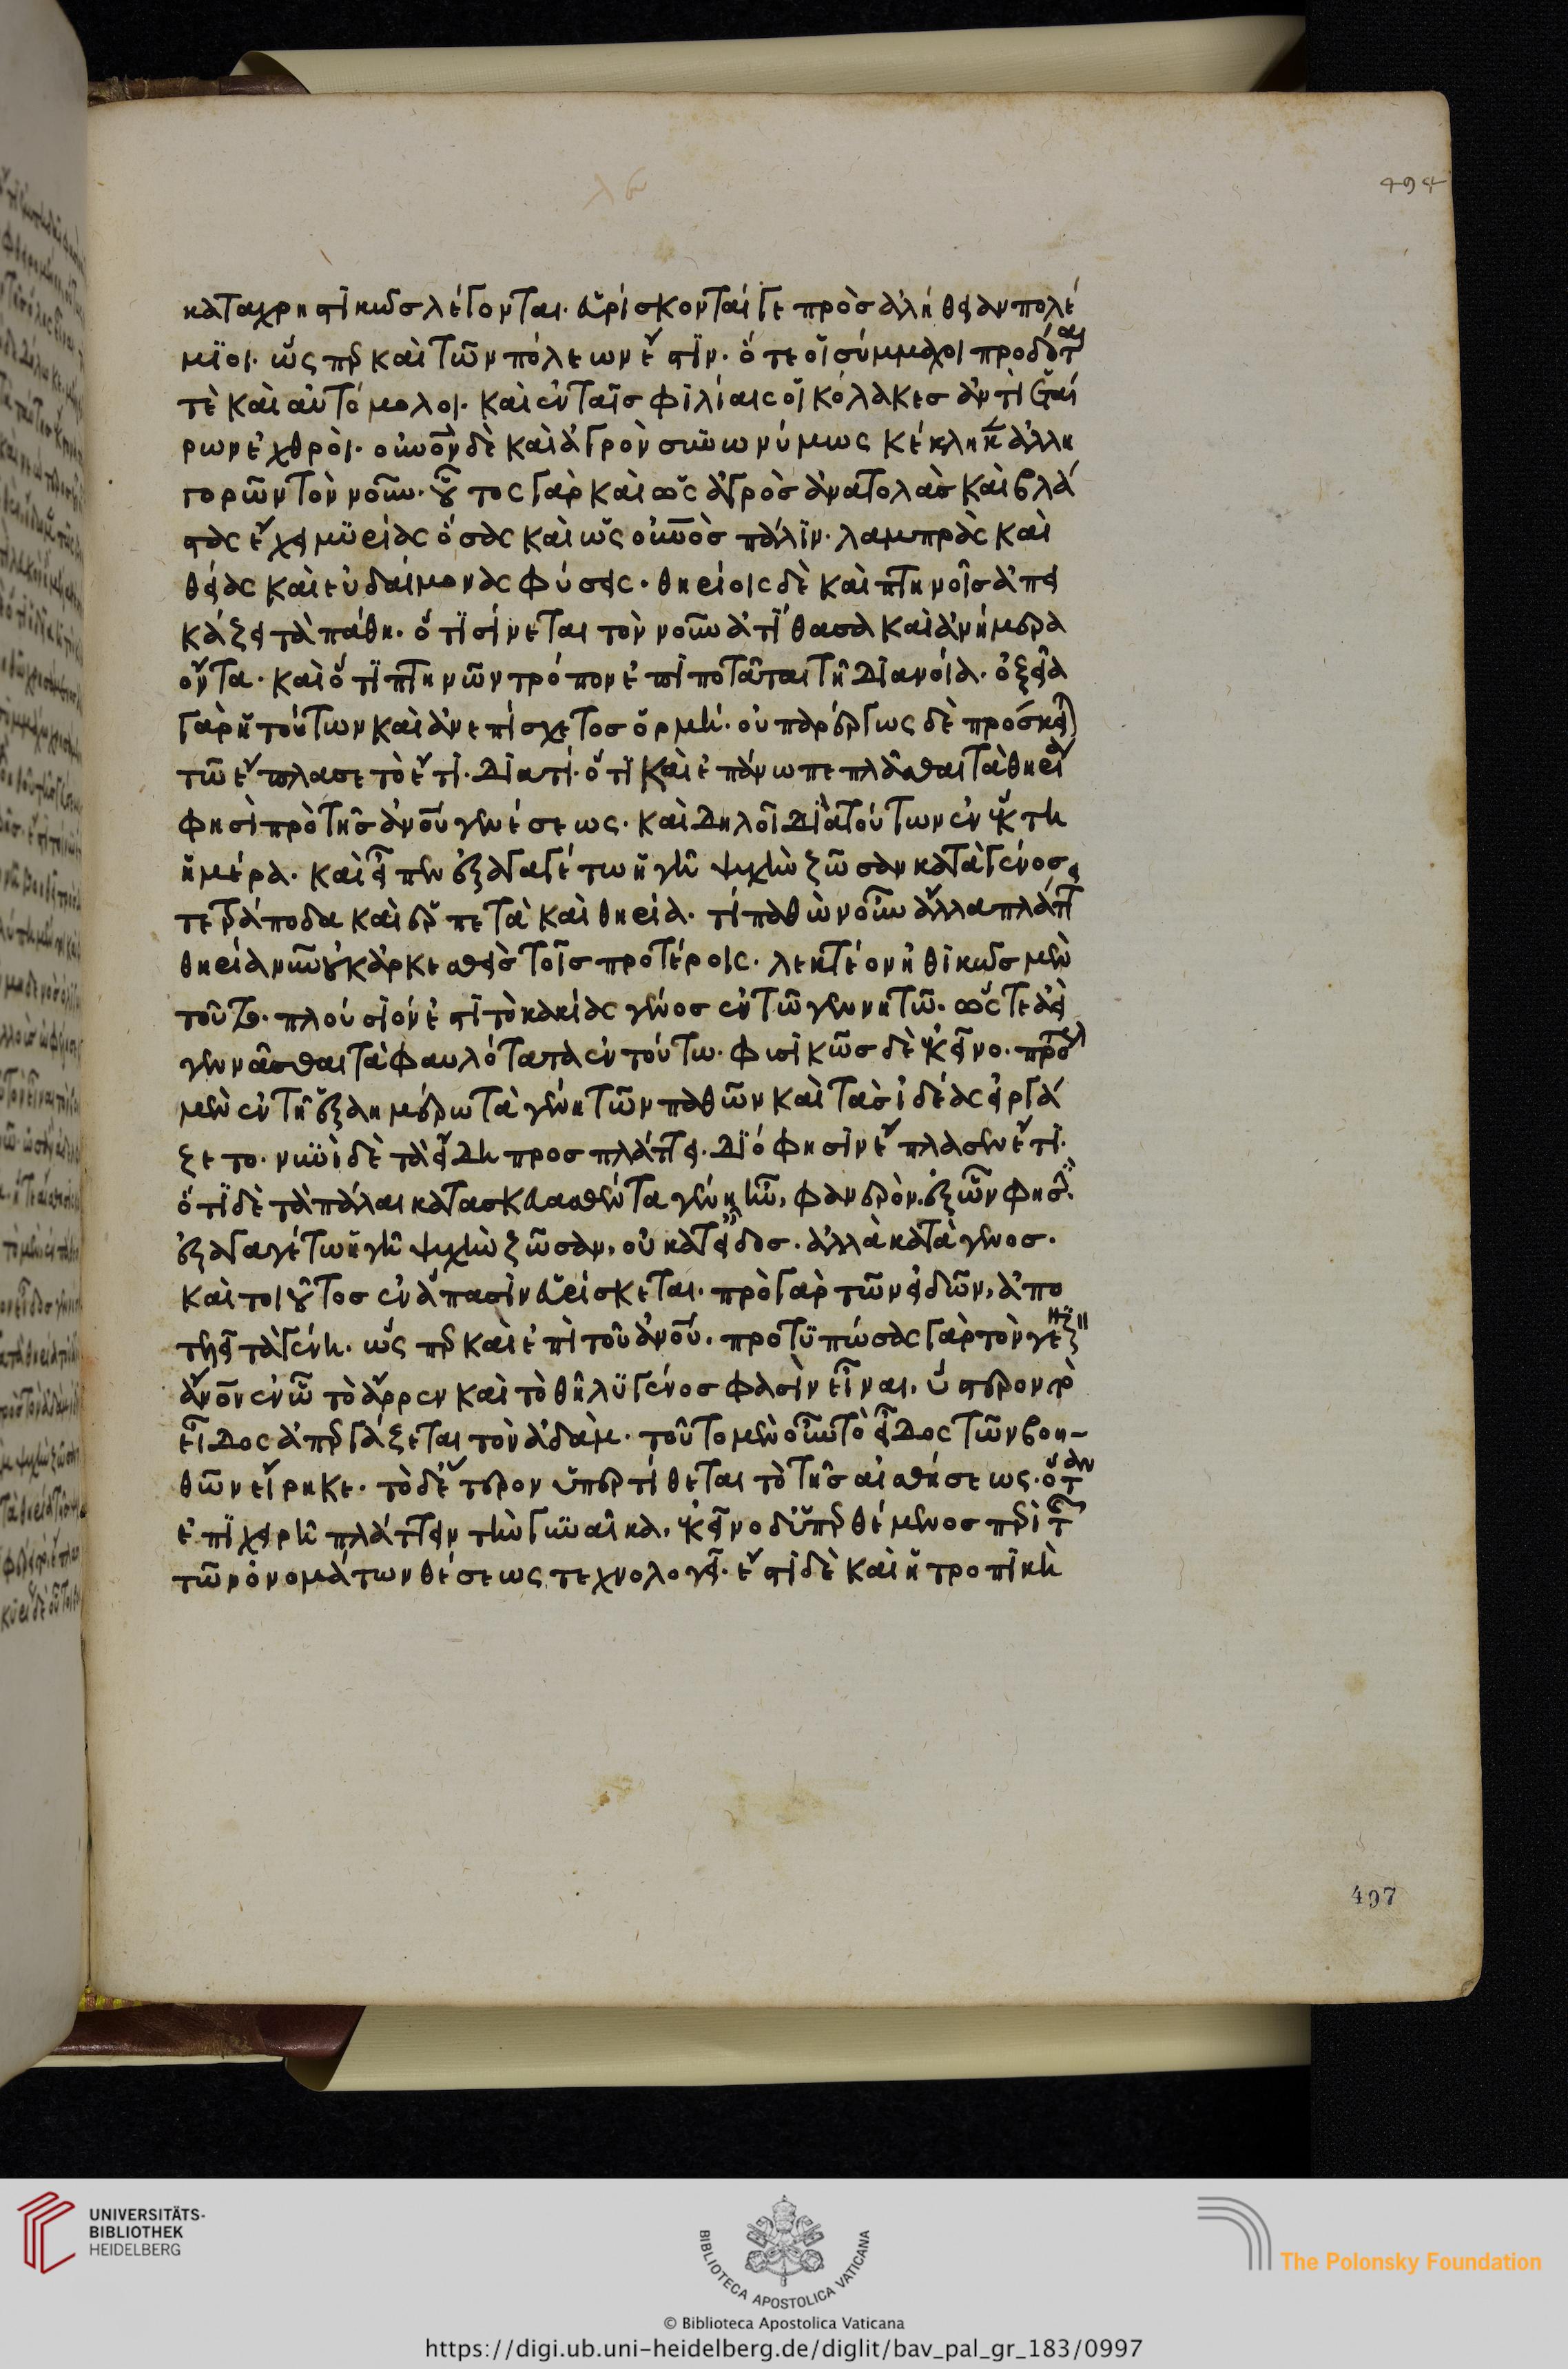 καταχρηστικῶς λέγονται. εὑρίσκονταί γε πρὸς ἀλήθειαν πολέ
μιοι. ὥσπερ καὶ τῶν πόλεων ἔστιν. ὅτε οἱ σύμμαχοι προδόται
τὲ καὶ αὐτόμολοι. καὶ ἐν ταῖς φιλίαις οἱ κόλακες ἀντὶ ἑταί
ρων ἐχθροί. οὐνὸν δὲ καὶ ἀγρὸν συνωνύμως κέκληκεν ἀλλη
γορῶν τὸν νοῦν. οὗτος γὰρ καὶ ὡς ἀγρὸς ἀνατολὰς καὶ βλά
στας ἔχει μυρίας ὅσας καὶ ὡς οὐνὸς πάλιν. λαμπρὰς καὶ
θείας καὶ εὐδαίμονας φύσεις. θηρίοις δὲ καὶ πτηνοῖς ἀπει
κάζει τὰ πάθη. ὅτι σίνεται τὸν νοῦν ἀτίθασα καὶ ἀνήμερα
ὄντα. καὶ ὅτι πτηνῶν τρόπον ἐπιποτᾶται τῆ διανοία. ὀξεῖα
γὰρ ἡ τούτων καὶ ἀνεπίσχετος ὁρμή. οὐ παρέργως δὲ πρόσκειται
τῶ ἔπλασε τὸ ἔτι. διατί. ὅτι καὶ ἐπάνω πεπλᾶσθαι τὰ θηρία
φησὶ πρὸ τῆς ἀνου γενέσεως. καὶ δηλοῖ διὰ τούτων ἐν ἕκτη
ἡμέρα. καὶ εἶπεν ἐξαγαγέτω ἡ γῆ ψυχὴν ζῶσαν κατὰ γένος,
τετράποδα καὶ ἑρπετὰ καὶ θηρία. τί παθὼν οὖν ἄλλα πλάττει
θηρία νῦν οὐκ ἀρκεσθεὶς τοῖς προτέροις. λεκτέον ἠθικῶς μὲν
τοῦτο. πλούσιόν ἐστι τὸ κακίας γένος ἐν τῶ γεννητῶ. ὥστε ἀεὶ
γεννᾶσθαι τὰ φαυλότατα ἐν τούτω. φυσικῶς δὲ ἐκεῖνο. πρότερον
μὲν ἐν τῆ ἑξαημέρω τὰ γένη τῶν παθῶν καὶ τὰς ἰδέας εἰργά
ζετο. νυνὶ δὲ τὰ εἴδη προσπλάττει. διό φησιν ἔπλασεν ἔτι.
ὅτι δὲ τὰ πάλαι κατασκευασθέντα γένη ἦν, φανερόν. ἐξ ὧν φησὶν
ἐξαγαγέτω ἡ γῆ ψυχὴν ζῶσαν, οὐ κατ' εἶδος. ἀλλὰ κατὰ γένος.
καὶ τοιοῦτος ἐν ἅπασιν εὑρίσκεται. πρὸ γὰρ τῶν εἰδῶν, ἀπο
τελεῖ τὰ γένη. ὥσπερ καὶ ἐπὶ τοῦ ἀνου. προτυπώσας γὰρ τὸν γενικὸν
ἄνον ἐν ὧ τὸ ἄρρεν καὶ τὸ θῆλυ γένος φασὶν εἶναι, ὕστερον τὸ
εἶδος ἀπεργάζεται τὸν ἀδάμ. τοῦτο μὲν οὖν τὸ εἶδος τῶν βοη-
θῶν εἴρηκε. τὸ δ' ἕτερον ὑπερτίθεται τὸ τῆς αἰσθήσεως. ὅταν
ἐπιχειρῆ πλάττειν τὴν γυναῖκα, ἐκεῖνο δ' ὑπερθέμενος περὶ τῆς
τῶν ὀνομάτων θέσεως τεχνολογεῖ. ἔστι δὲ καὶ ἡ τροπικὴ
494
497
UNIVERSITÄTS-
BIBLIOTHEK
HEIDELBERG
BIBLIOTECA APOSTOLICA VATICANA
The Polonsky Foundation
© Biblioteca Apostolica Vaticana
https://digi.ub.uni-heidelberg.de/diglit/bav_pal_gr_183/0997